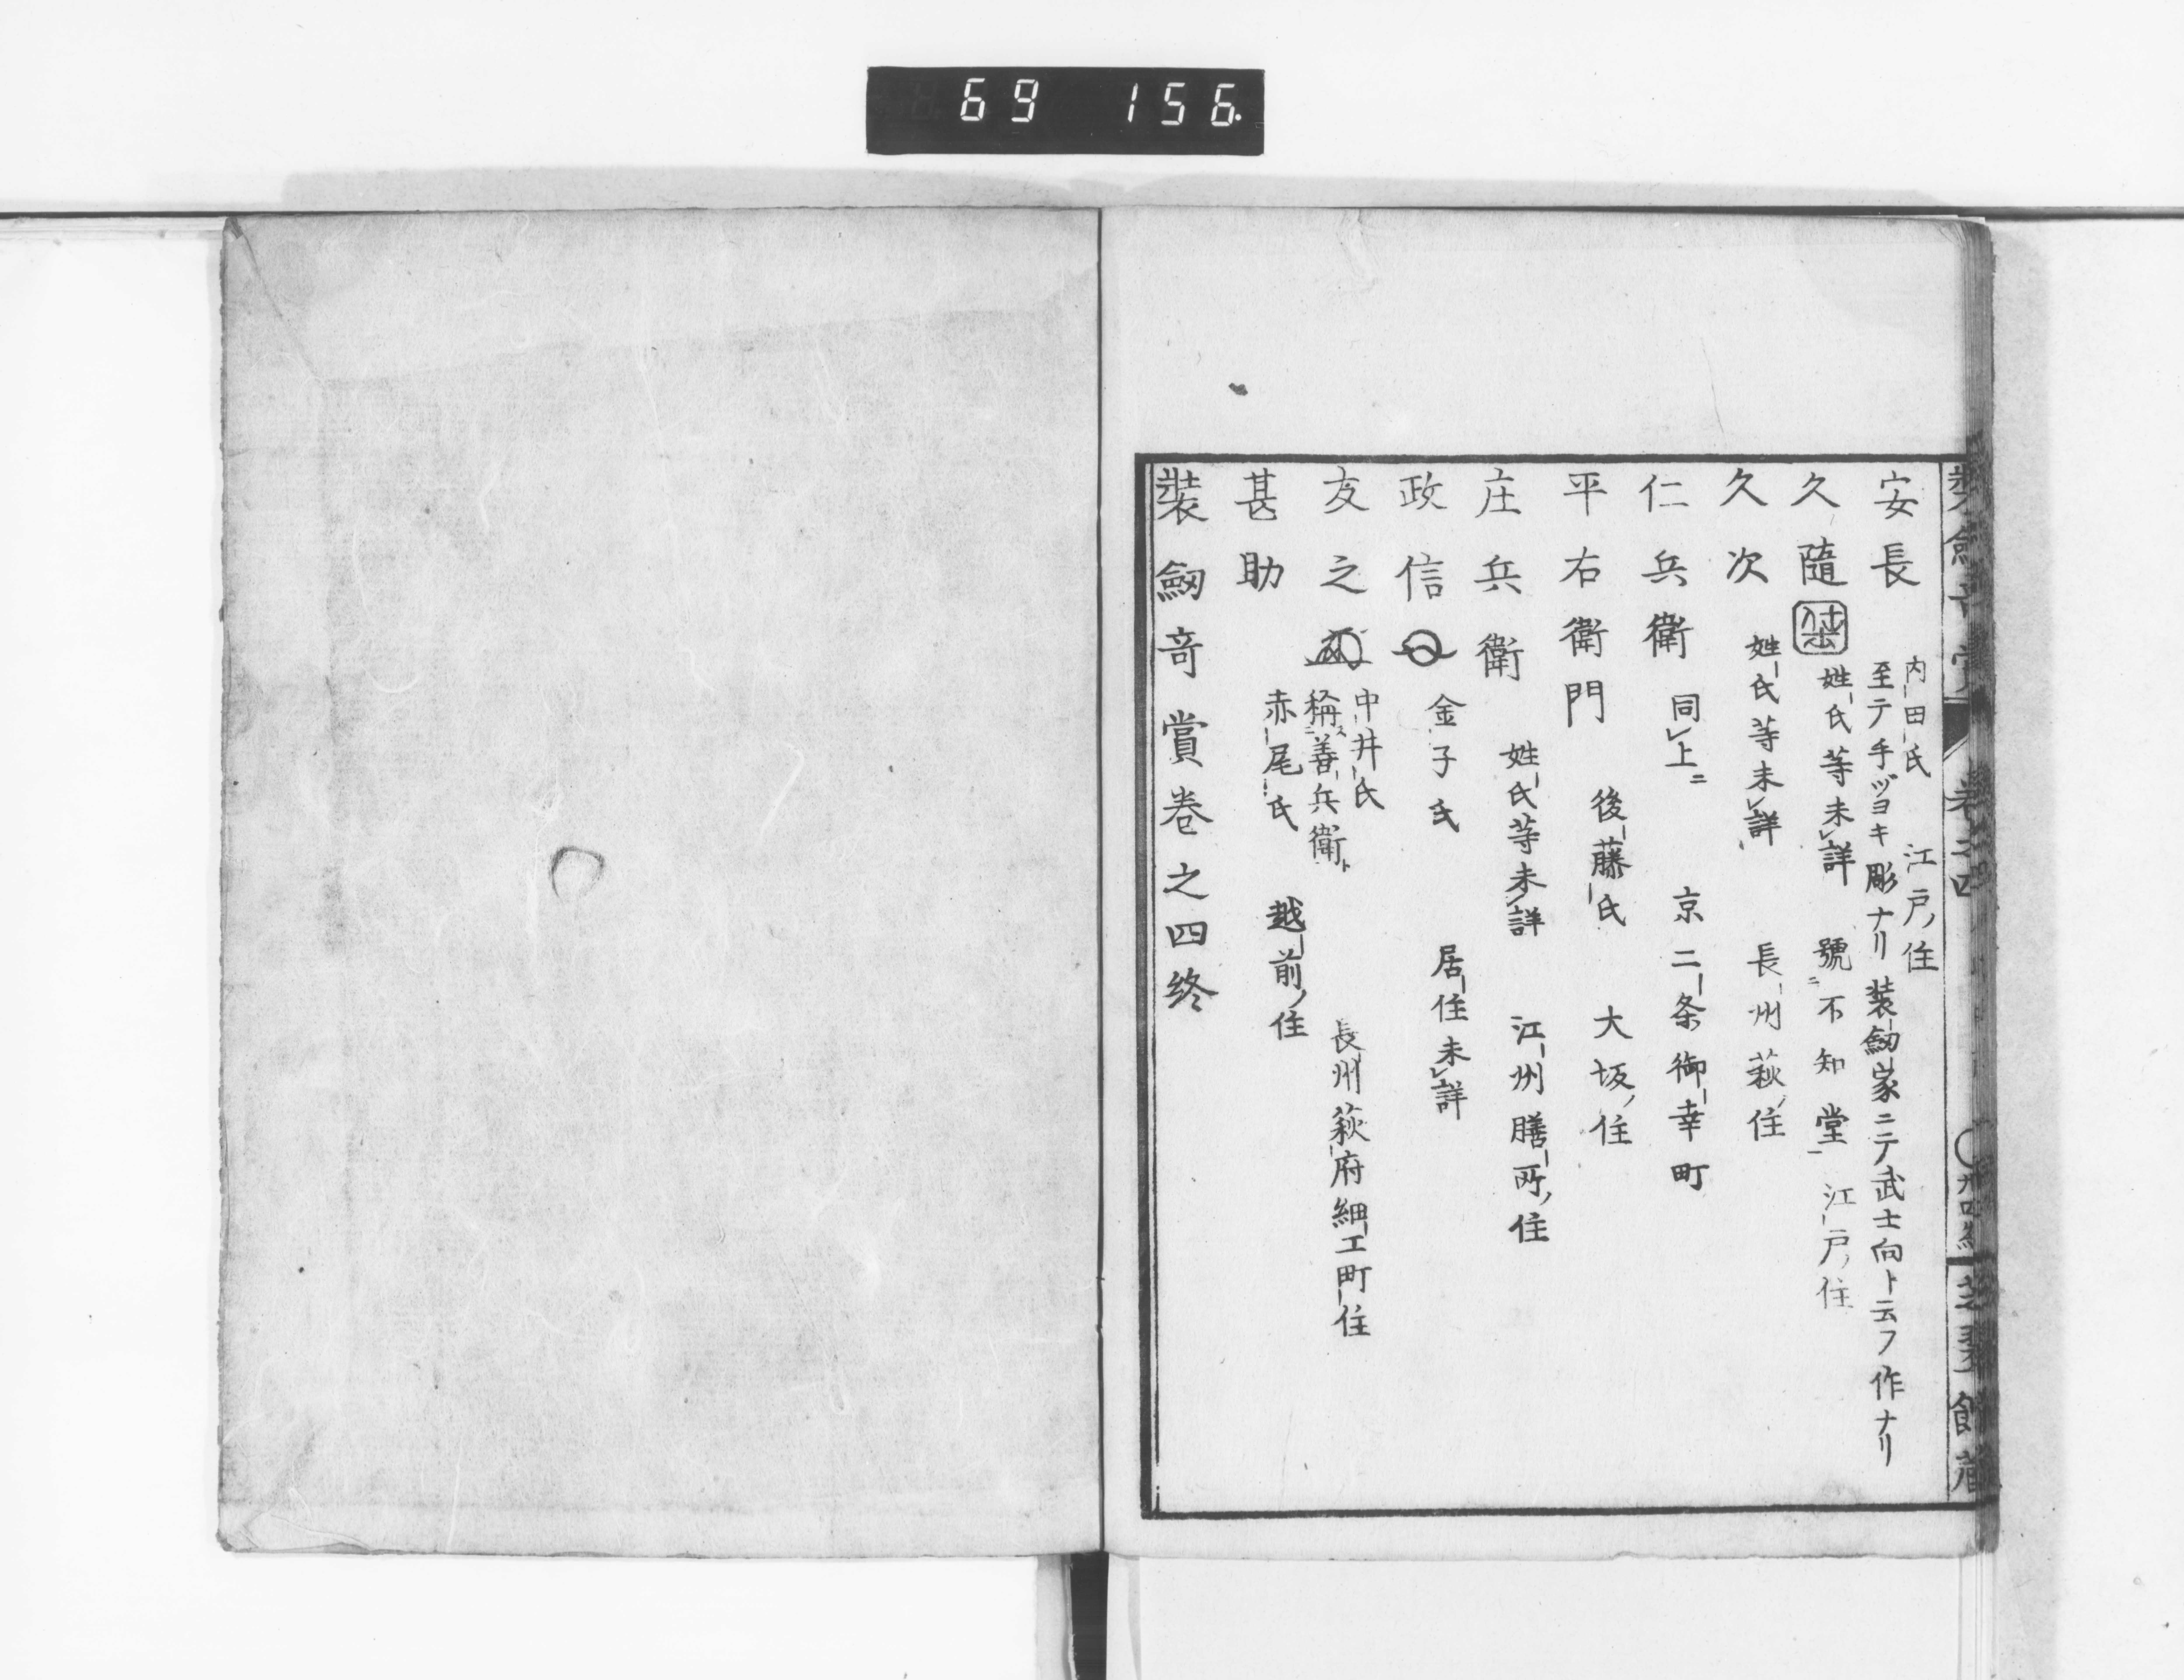 69 156.
安長 内田氏 江戸ノ住
至テ手ヅヨキ彫ナリ 装劔家ニテ武士向ト云フ作ナリ
久随 姓氏等未レ詳 號ニ不知堂一 江戸ノ住
久次 姓氏等未レ詳 長州萩ノ住
仁兵衛 同レ上ニ 京二条御幸町
平右衛門 後藤氏 大坂ノ住
庄兵衛 姓氏等未レ詳 江州膳所ノ住
政信 金子氏 居住未レ詳
友之 中井氏
稱ス二善兵衛ト一 長州萩府細工町住
甚助 赤尾氏 越前ノ住
装劔竒賞巻之四終